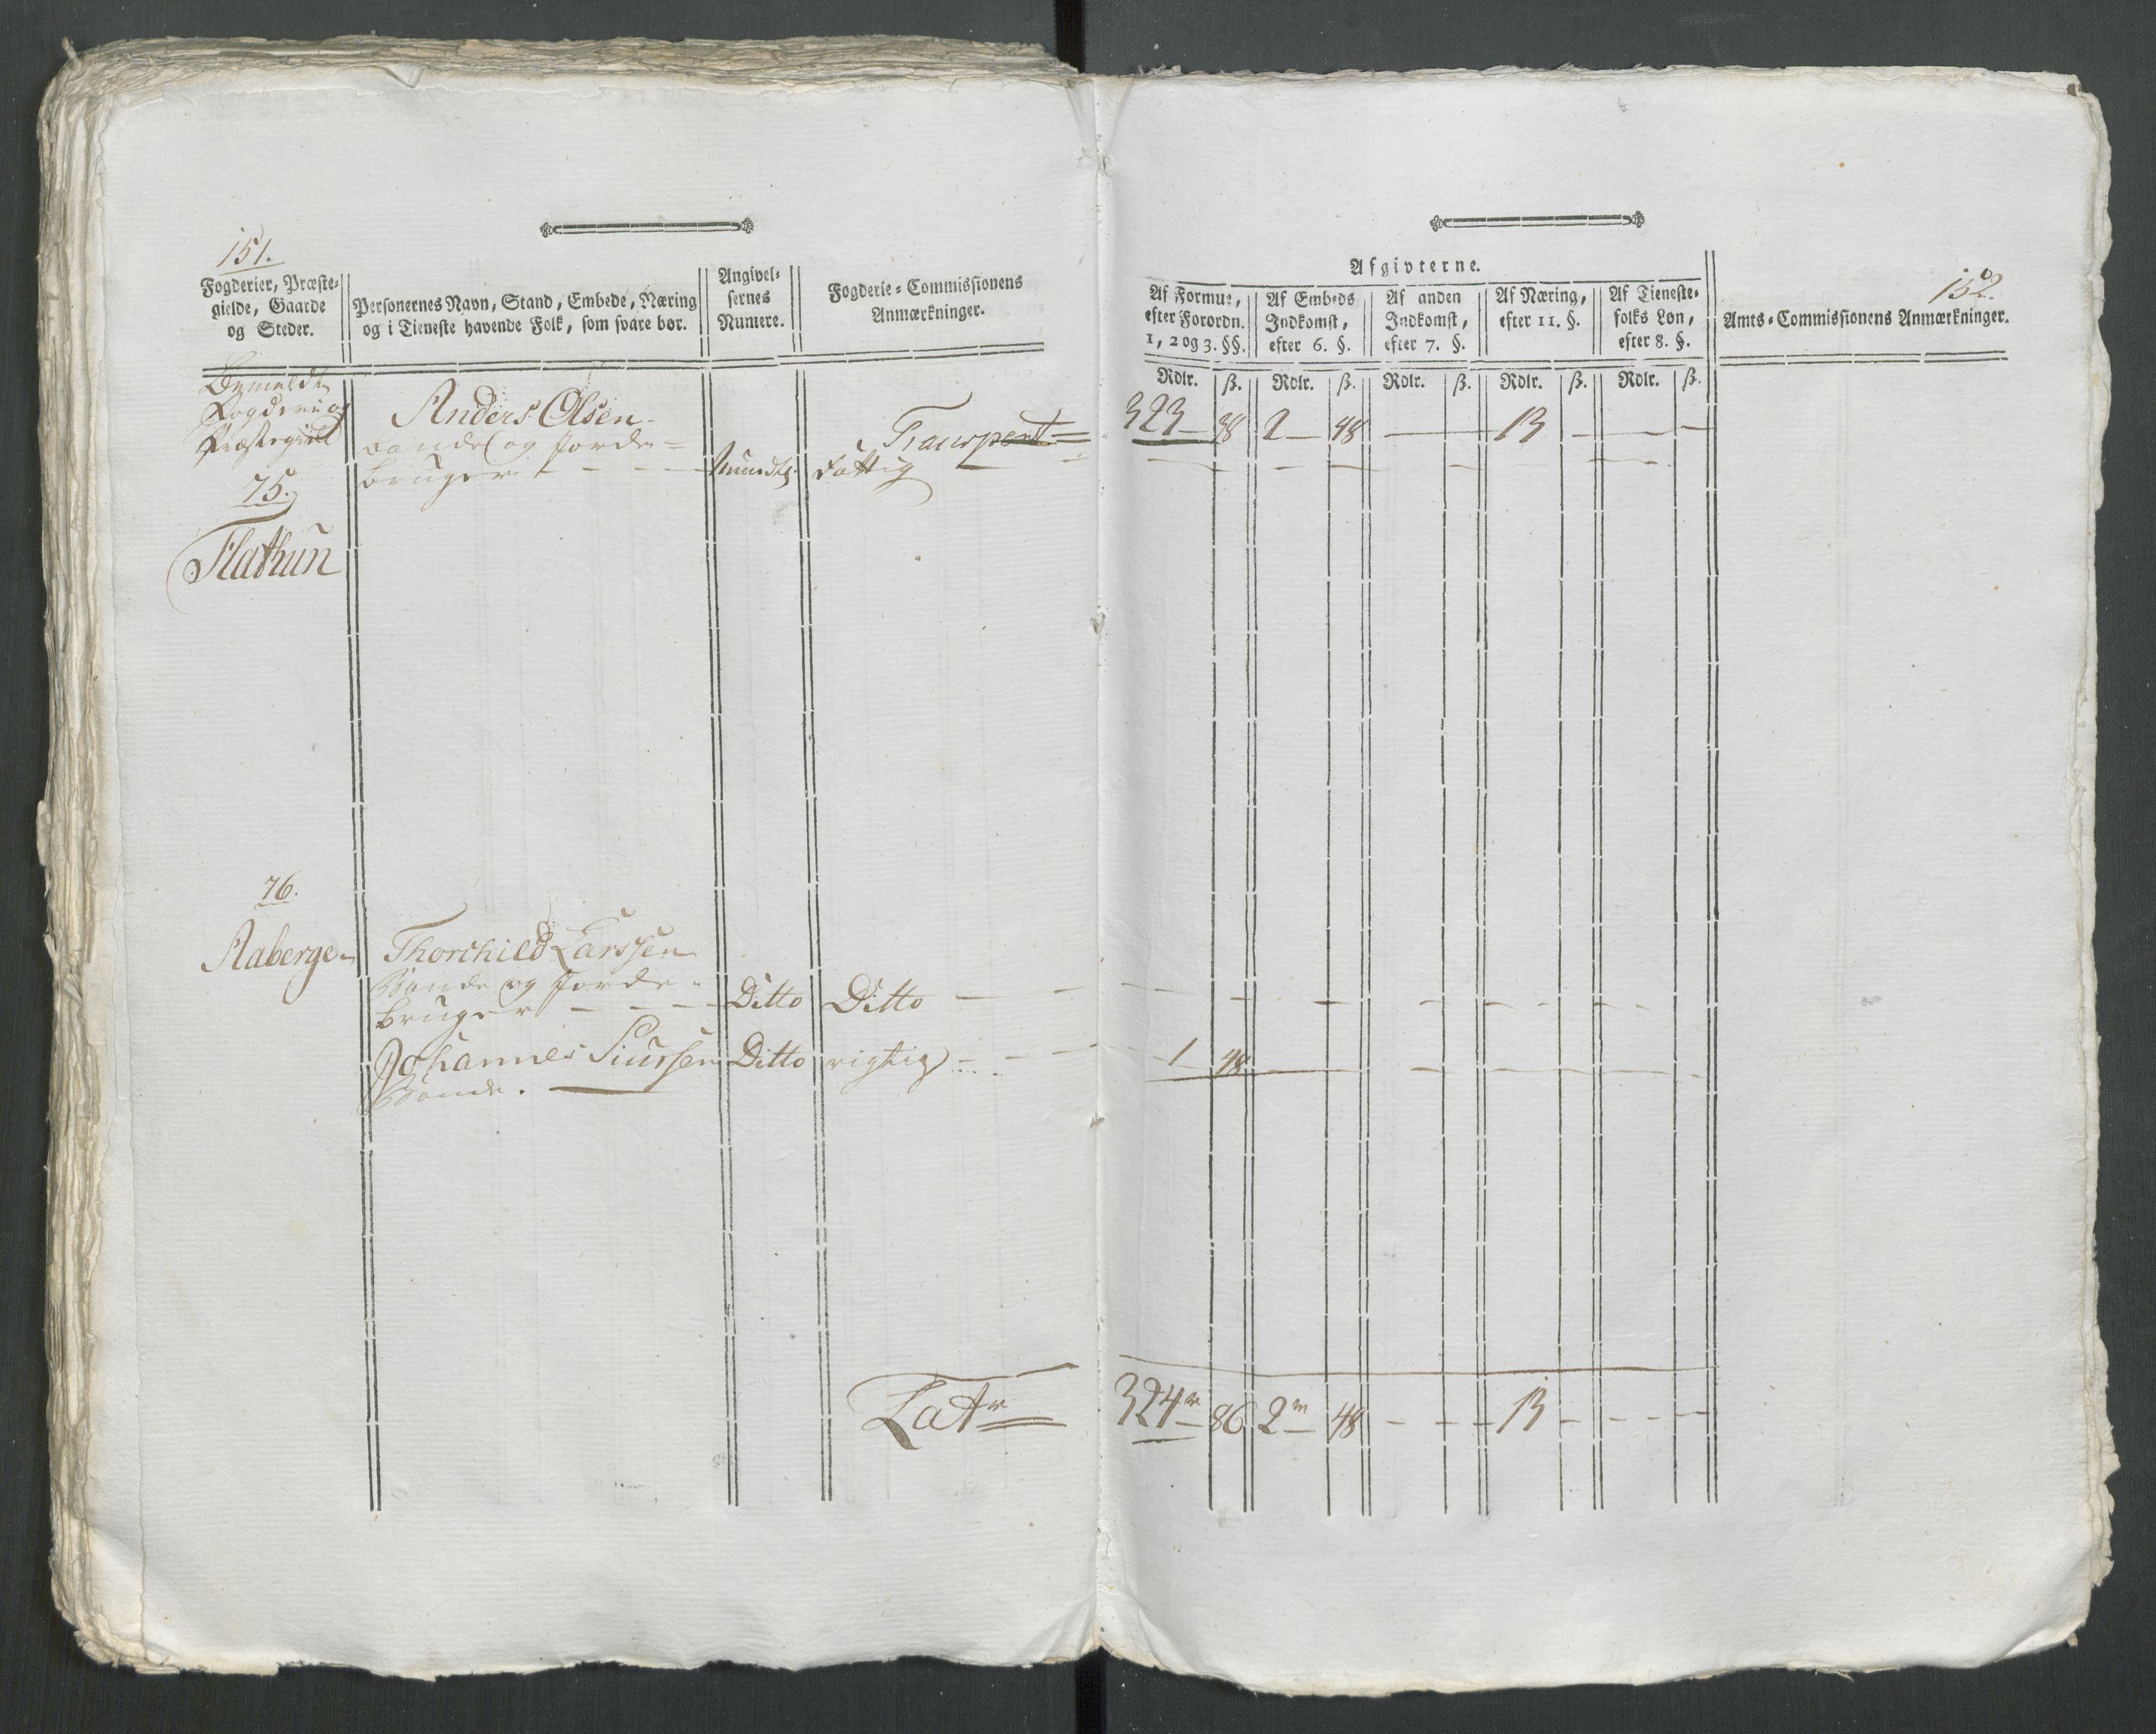 151.
Fogderier, Præste-
gielde, Gaarde
og Steder.
Personernes Navn, Stand, Embede, Næring
og i Tieneste havende Folk, som svare bør.
Angivel-
sernes
Numere.
Fogderie-Commissionens
Anmærkninger.
Bemeldte
Fogderie og
Præstegield
75.
Flathun
Anders Olsen
Bonde og Jorde=
bruger - - -
Mundtl.
Transport
Fattig
76.
Aaberge
Thorchild Larssen
Bonde og Jorde-
bruger - - -
Ditto
Ditto
Johannes Siurssen
Bonde.
Ditto
rigtig
Latr
152.
Afgivterne.
Af Formue,
efter Forordn.
1, 2 og 3. §§.
Af Embeds
Indkomst,
efter 6. §.
Af anden
Indkomst,
efter 7. §.
Af Næring,
efter 11. §.
Af Tieneste-
folks Løn,
efter 8. §.
Amts-Commissionens Anmærkninger.
Rdlr. ß. Rdlr. ß. Rdlr. ß. Rdlr. ß. Rdlr. ß.
323 38 2 48 — 13 — — —
1 48 — — — —
324 86 2 48 - - - 13 - - - -